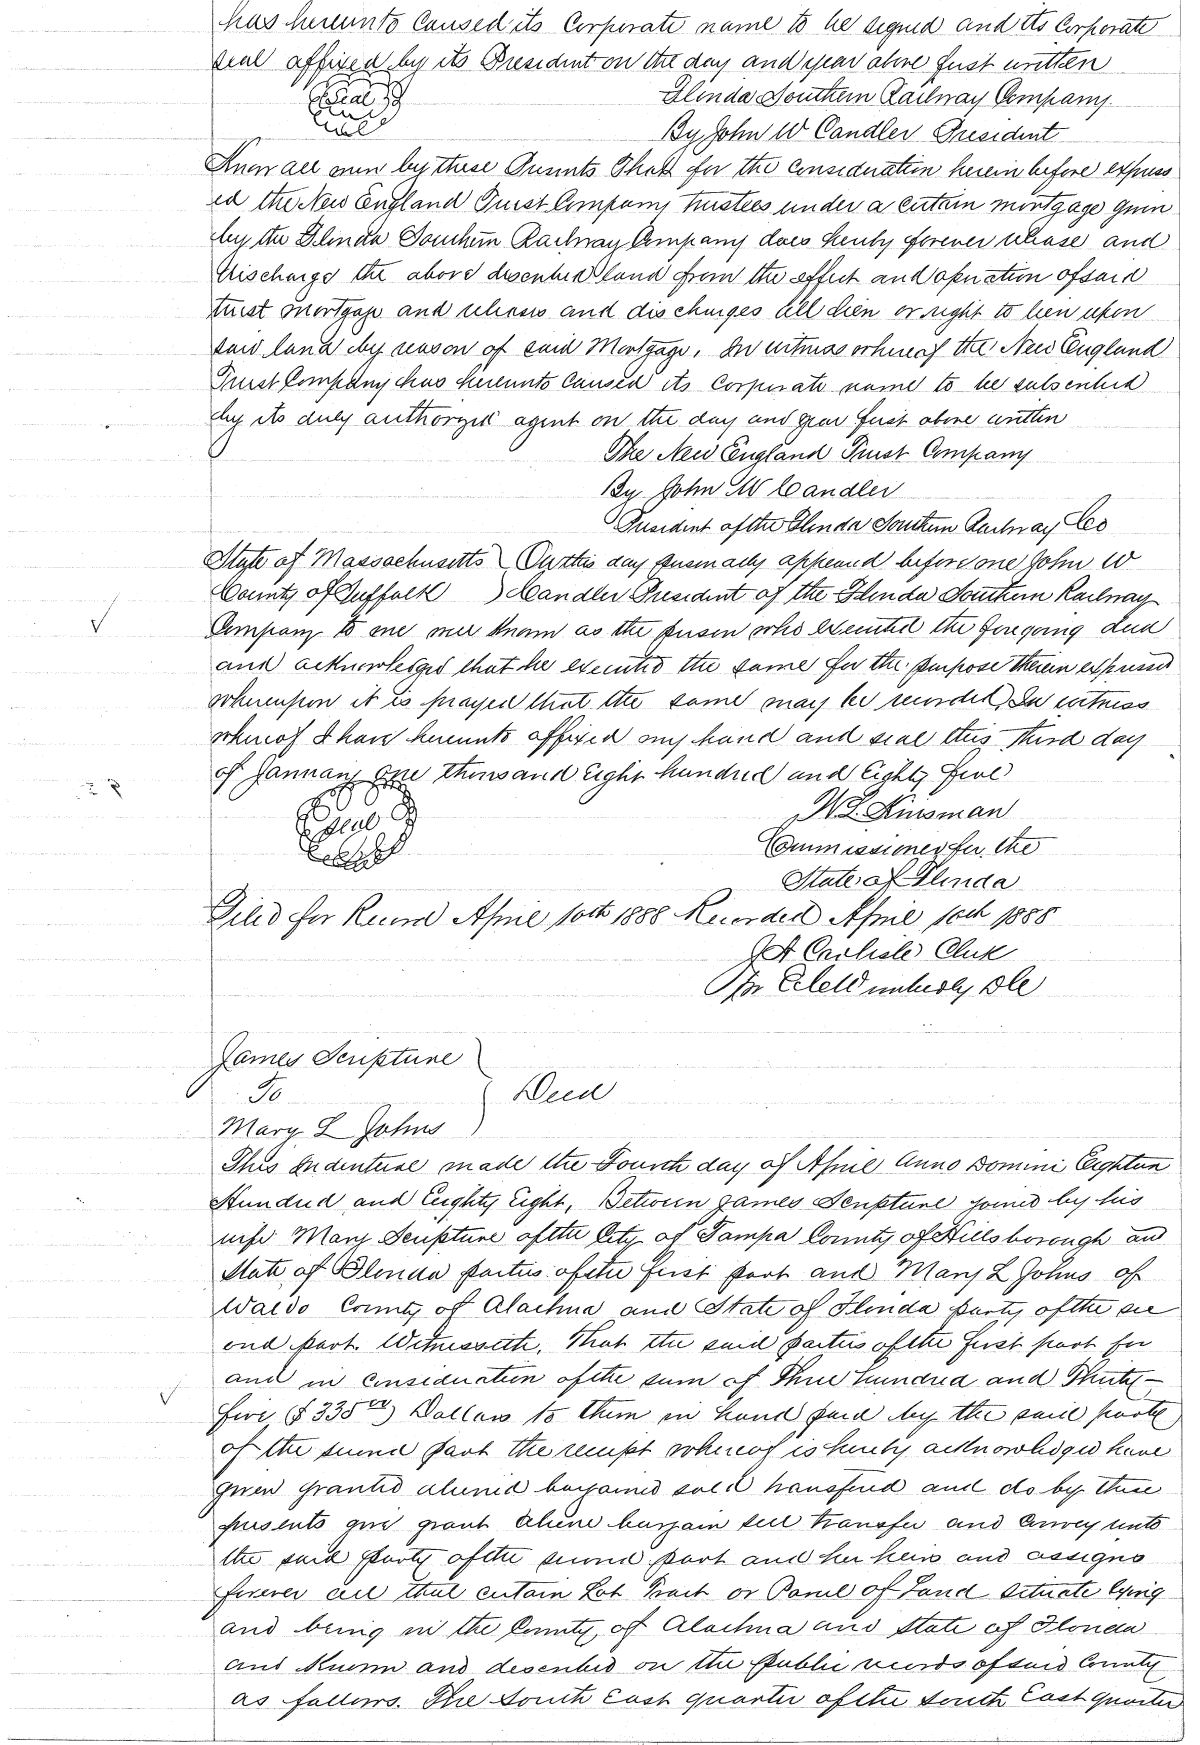 has hereunto caused its Corporate name to be signed and its Corporate
seal affixed by its President on the day and year above first written
Seal
Florida Southern Railway Company.
By John W Candler President
Know all men by these Presents That for the consideration herein before express
ed the New England Trust Company trustees under a certain mortgage given
by the Florida Southern Railway Company does hereby forever release and
discharge the above described land from the effect and operation of said
trust mortgage and releases and discharges all lien or right to lien upon
said land by reason of said Mortgage. In witness whereof the New England
Trust Company has hereunto caused its corporate name to be subscribed
by its duly authorized agent on the day and year first above written
The New England Trust Company
By John W Candler
President of the Florida Southern Railway Co
State of Massachusetts ) On this day personally appeared before me John W
County of Suffolk ) Candler President of the Florida Southern Railway
Company to me well known as the person who executed the foregoing deed
and acknowledged that he executed the same for the purpose therein expressed
whereupon it is prayed that the same may be recorded, In witness
whereof I have hereunto affixed my hand and seal this third day
of January one thousand eight hundred and Eighty five
Seal
W.L. Kinsman
Commissioner for the
State of Florida
Filed for Record April 10th 1888 Recorded April 10th 1888
J A Carlisle Clerk
Per
James Scripture
To
Deed
Mary L Johns
This Indenture made the Fourth day of April Anno Domini Eighteen
Hundred and Eeighty Eight, Between James Scripture joined by his
wife Mary Scripture of the City of Tampa County of Hillsborough and
State of Florida parties of the first part and Mary L Johns of
Waldo County of Alachua and State of Florida party of the sec
ond part. Witnesseth, That the said parties of the first part for
and in consideration of the sum of Three hundred and Thirty-
five ($335 00) Dollars to them in hand paid by the said party
of the second part the receipt whereof is hereby acknowledged have
given granted aliened bargained sold transfered and do by these
presents give grant aliene bargain sell transfer and convey unto
the said party of the second part and her heirs and assigns
forever all that certain Lot Tract or Parcel of Land situate lying
and being in the County of Alachua and State of Florida
and known and described on the public records of said County
as follows. The South East quarter of the South East quarter